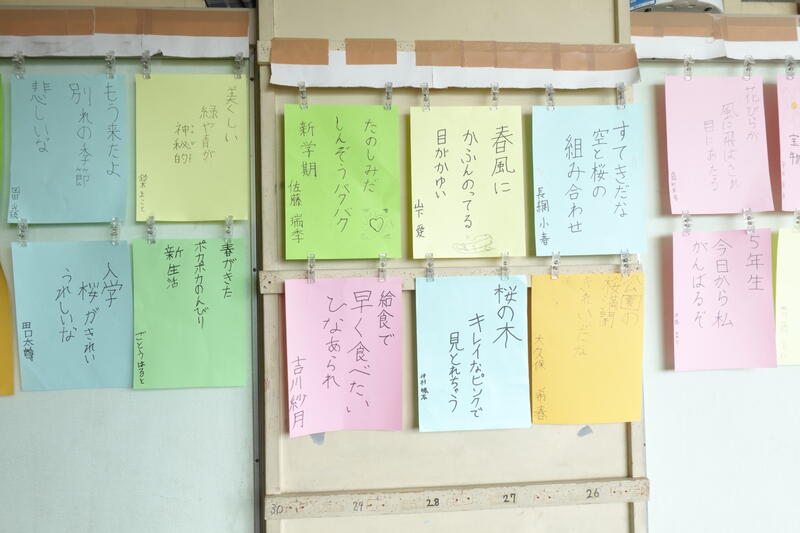 もう来たよ
別れの季節
悲しいな
美しい
緑や青が
神秘的
入学
桜がきれい
うれしいな
田口太
春がきた
ポカポカのんびり
新生活
ごとうはると
たのしみだ
しんぞうバクバク
新学期
佐藤 瑞季
春風に
かふんのってる
目がかゆい
山下 愛
すてきだな
空と桜の
組み合わせ
長綱 小春
給食で
早く食べたい
ひなあられ
吉川紗月
桜の木
キレイなピンクで
見とれちゃう
公園の
桜満開
きれいだな
大久保 希春
花びらが
風に飛ばされ
目にあたる
5年生
今日から私
がんばるぞ
宝物
30
29
28
27
26